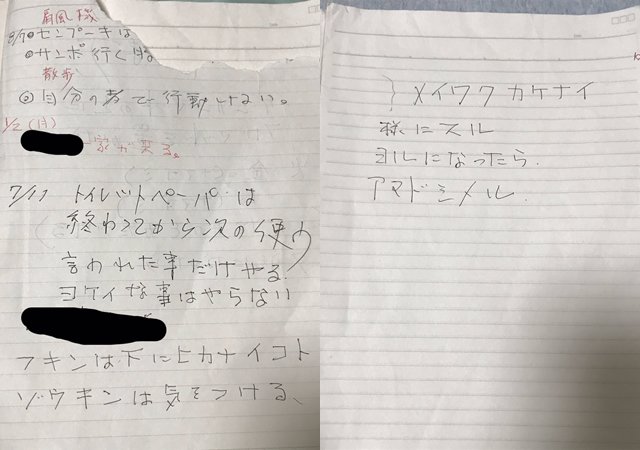 扇風機
8/7 ◎センプーキは
◎サンポ行く時
散歩
◎自分の考で行動しない。
1/2 (月)
家が来る。
7/17 トイレットペーパは
終わってから次の使う
言われた事だけやる。
ヨケイな事はやらない
フキンは下にヒカナイコト
ゾウキンは気をつける、
メイワクカケナイ
様にスル
ヨルになったら.
アマドシメル.